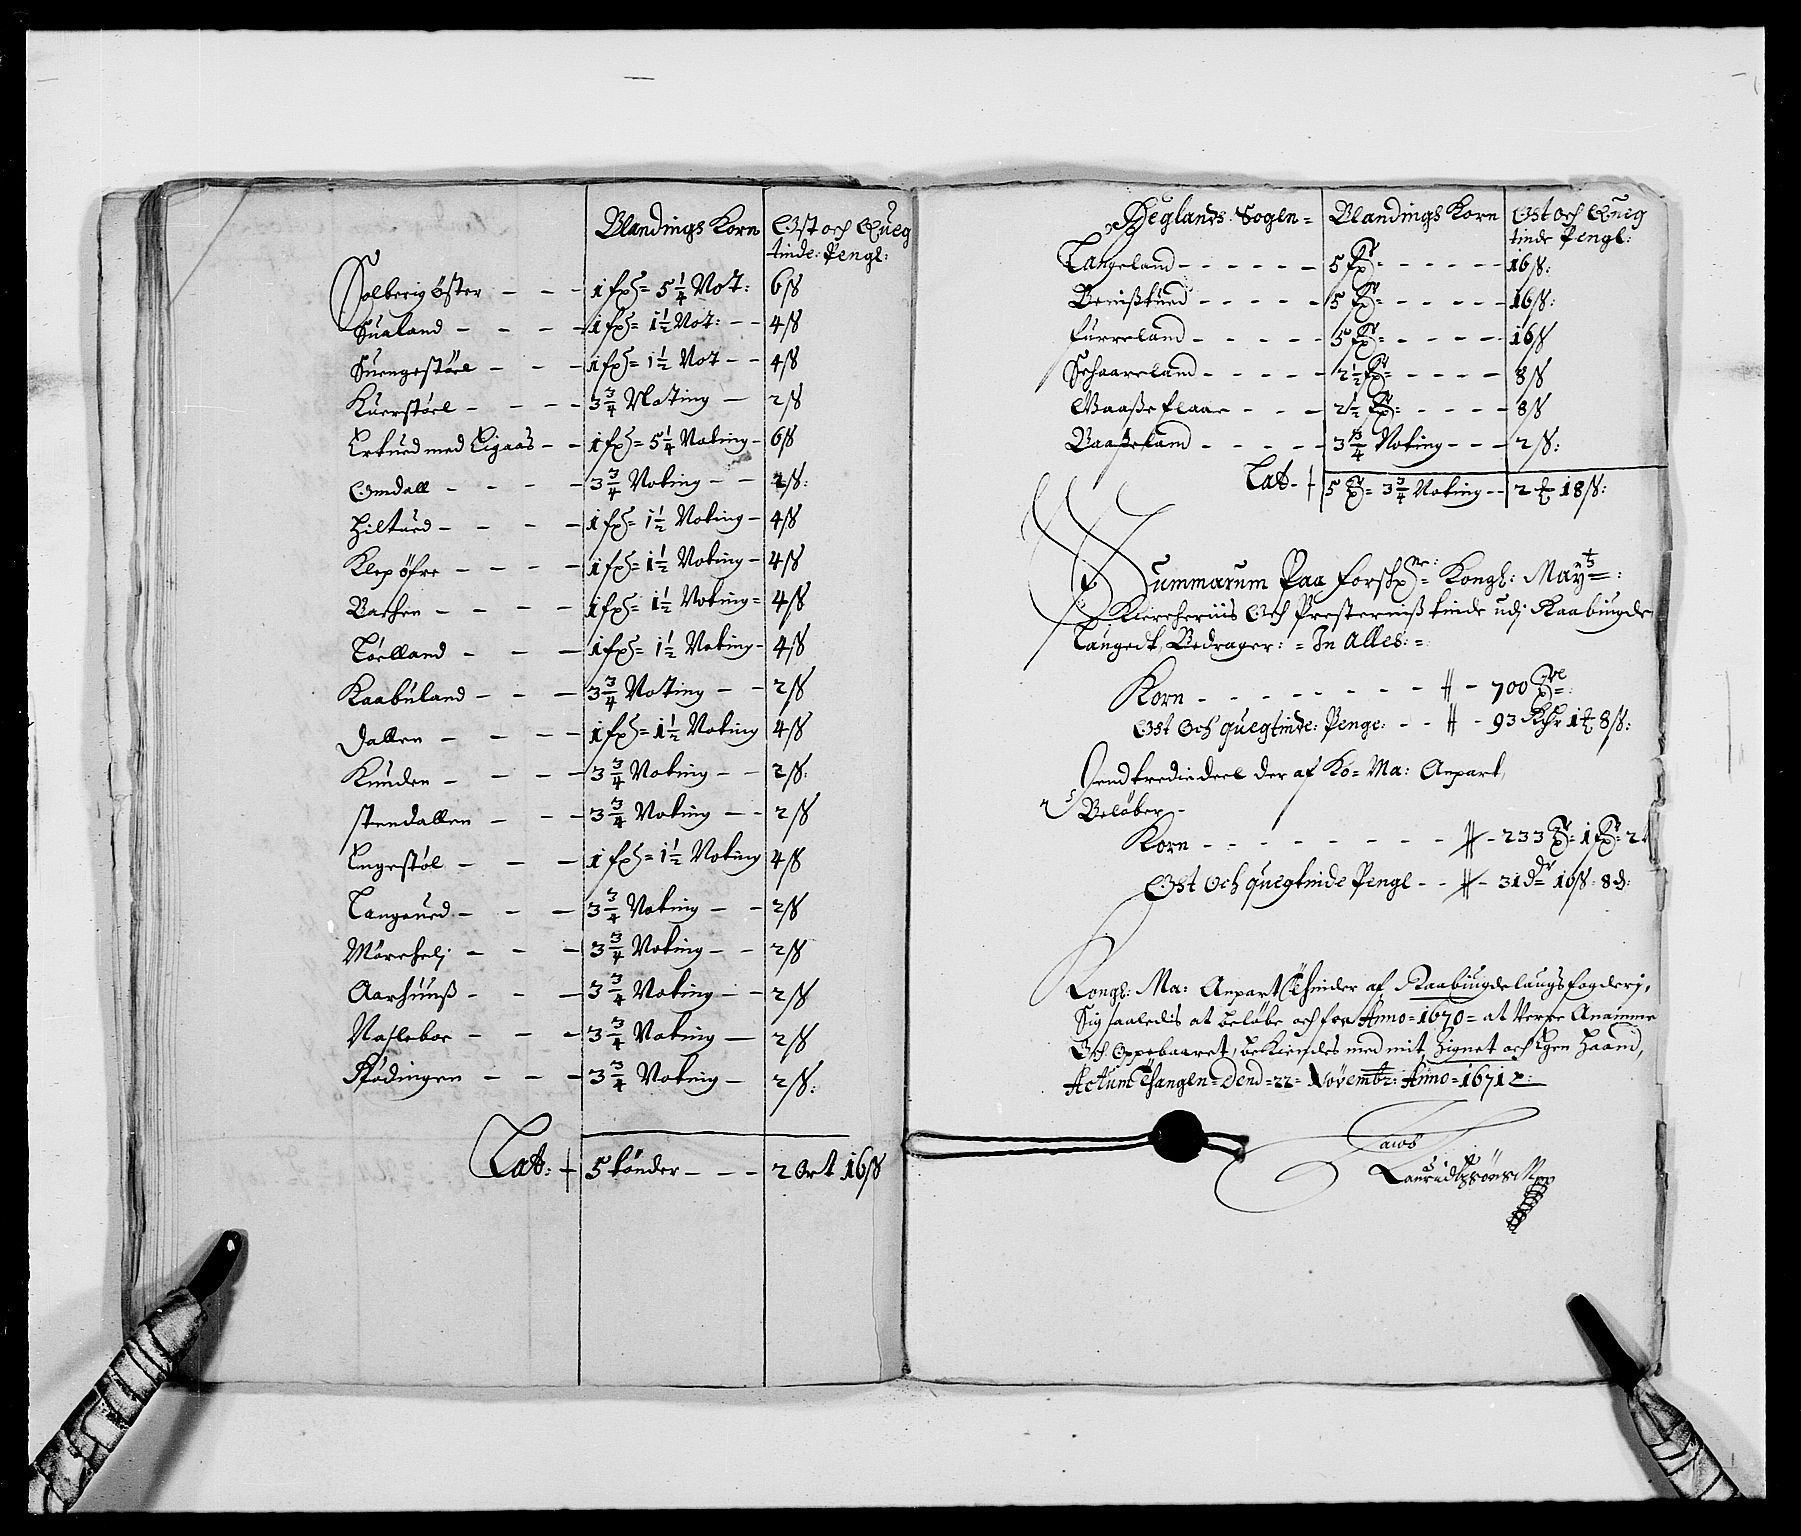 Blandings Korn Ost och Queg
tinde: Penge:
Solberig öster - - - 1 fx = 5 1/4 Not: 6 ß
Sualand - - - 1 fx = 1 1/2 Not: - - 4 ß
Suengestöel - - - 1 fx = 1 1/2 Not - - 4 ß
Kuerstöel - - - 3 3/4 Noting - 2 ß
med Ligaas - - 1 fx = 5 1/4 Noting - 6 ß
Omdall - - - - 3 3/4 Noting - - 2 ß:
Hiltued - - - - 1 fx = 1 1/2 Noting - 4 ß
Klep öfre - - - - 1 fx = 1 1/2 Noting - 4 ß
Bachen - - - - 1 fx = 1 1/2 Noting = 4 ß
Töelland - - - 1 fx = 1 1/2 Noting - 4 ß
Raabuland - - - 3 3/4 Noting - - 2 ß
Dallen - - - - 1 fx = 1 1/2 Noting 4 ß
Knuden - - - - 3 3/4 Noting - - 2 ß:
Stendallen - - - 3 3/4 Noting - - 2 ß
Engestöl - - - 1 fx = 1 1/2 Noting 4 ß
Langeued - - - 3 3/4 Noting - - 2 ß
Mörchelj - - - 3 3/4 Noting - - 2 ß
Aarhuuß - - - 3 3/4 Noting - - 2 ß
Nasleboe - - - 3 3/4 Noting - 2 ß
Födingen - - - 3 3/4 Noting - 2 ß:
Lat: 5 tönder - - - 2 Ort 16 ß
Heglands Sogen = Blandings Korn Ost och Queg
tinde Penge:
Langeland - - - - - - 5 fx - - - - - 16 ß:
Benißtued - - - - - 5 fx = - - - - - 16 ß:
Furreland - - - - - 5 fx = - - - - 16 ß
Schaareland - - - - - 2 1/2 fx = - - - - 8 ß
Waaße flaae - - - 2 1/2 fx = - - - - - 8 ß
Waaßeland - - - - - 3 3/4 Noting - - - 2 ß:
Lat - 5 = 3 3/4 Noting - - 2 18 ß:
Summarum Paa forsch = Kongl: Mayts:
Kircheriis Och Presterniß tinde udj Raabuigde
Laugedt, Bedrager: = In Alles: =
Korn - - - - - - - - - 700
Ost Och quegtinde: Penge: - - - 93 Rdr 1 8 ß:
Hend tredie deel der af Ko = Ma: Anpart
Belöber -
Korn - - - - - - - - 233 = 1 fx = 2
Ost Och quegtinde Penge - - - 31 dr = 16 ß = 8 d:
Kongl: Ma: Anpart tinder af Raabuigdelaugs fogderj,
Sig saaledis at belöbe och for Anno = 1670 = at Verre Anamme
Och Oppebaaret, bekiendes med mit Zignet och Egen Haand,
Actum = Dend = 22 = Növembr: Anno = 1671 =
Jacob